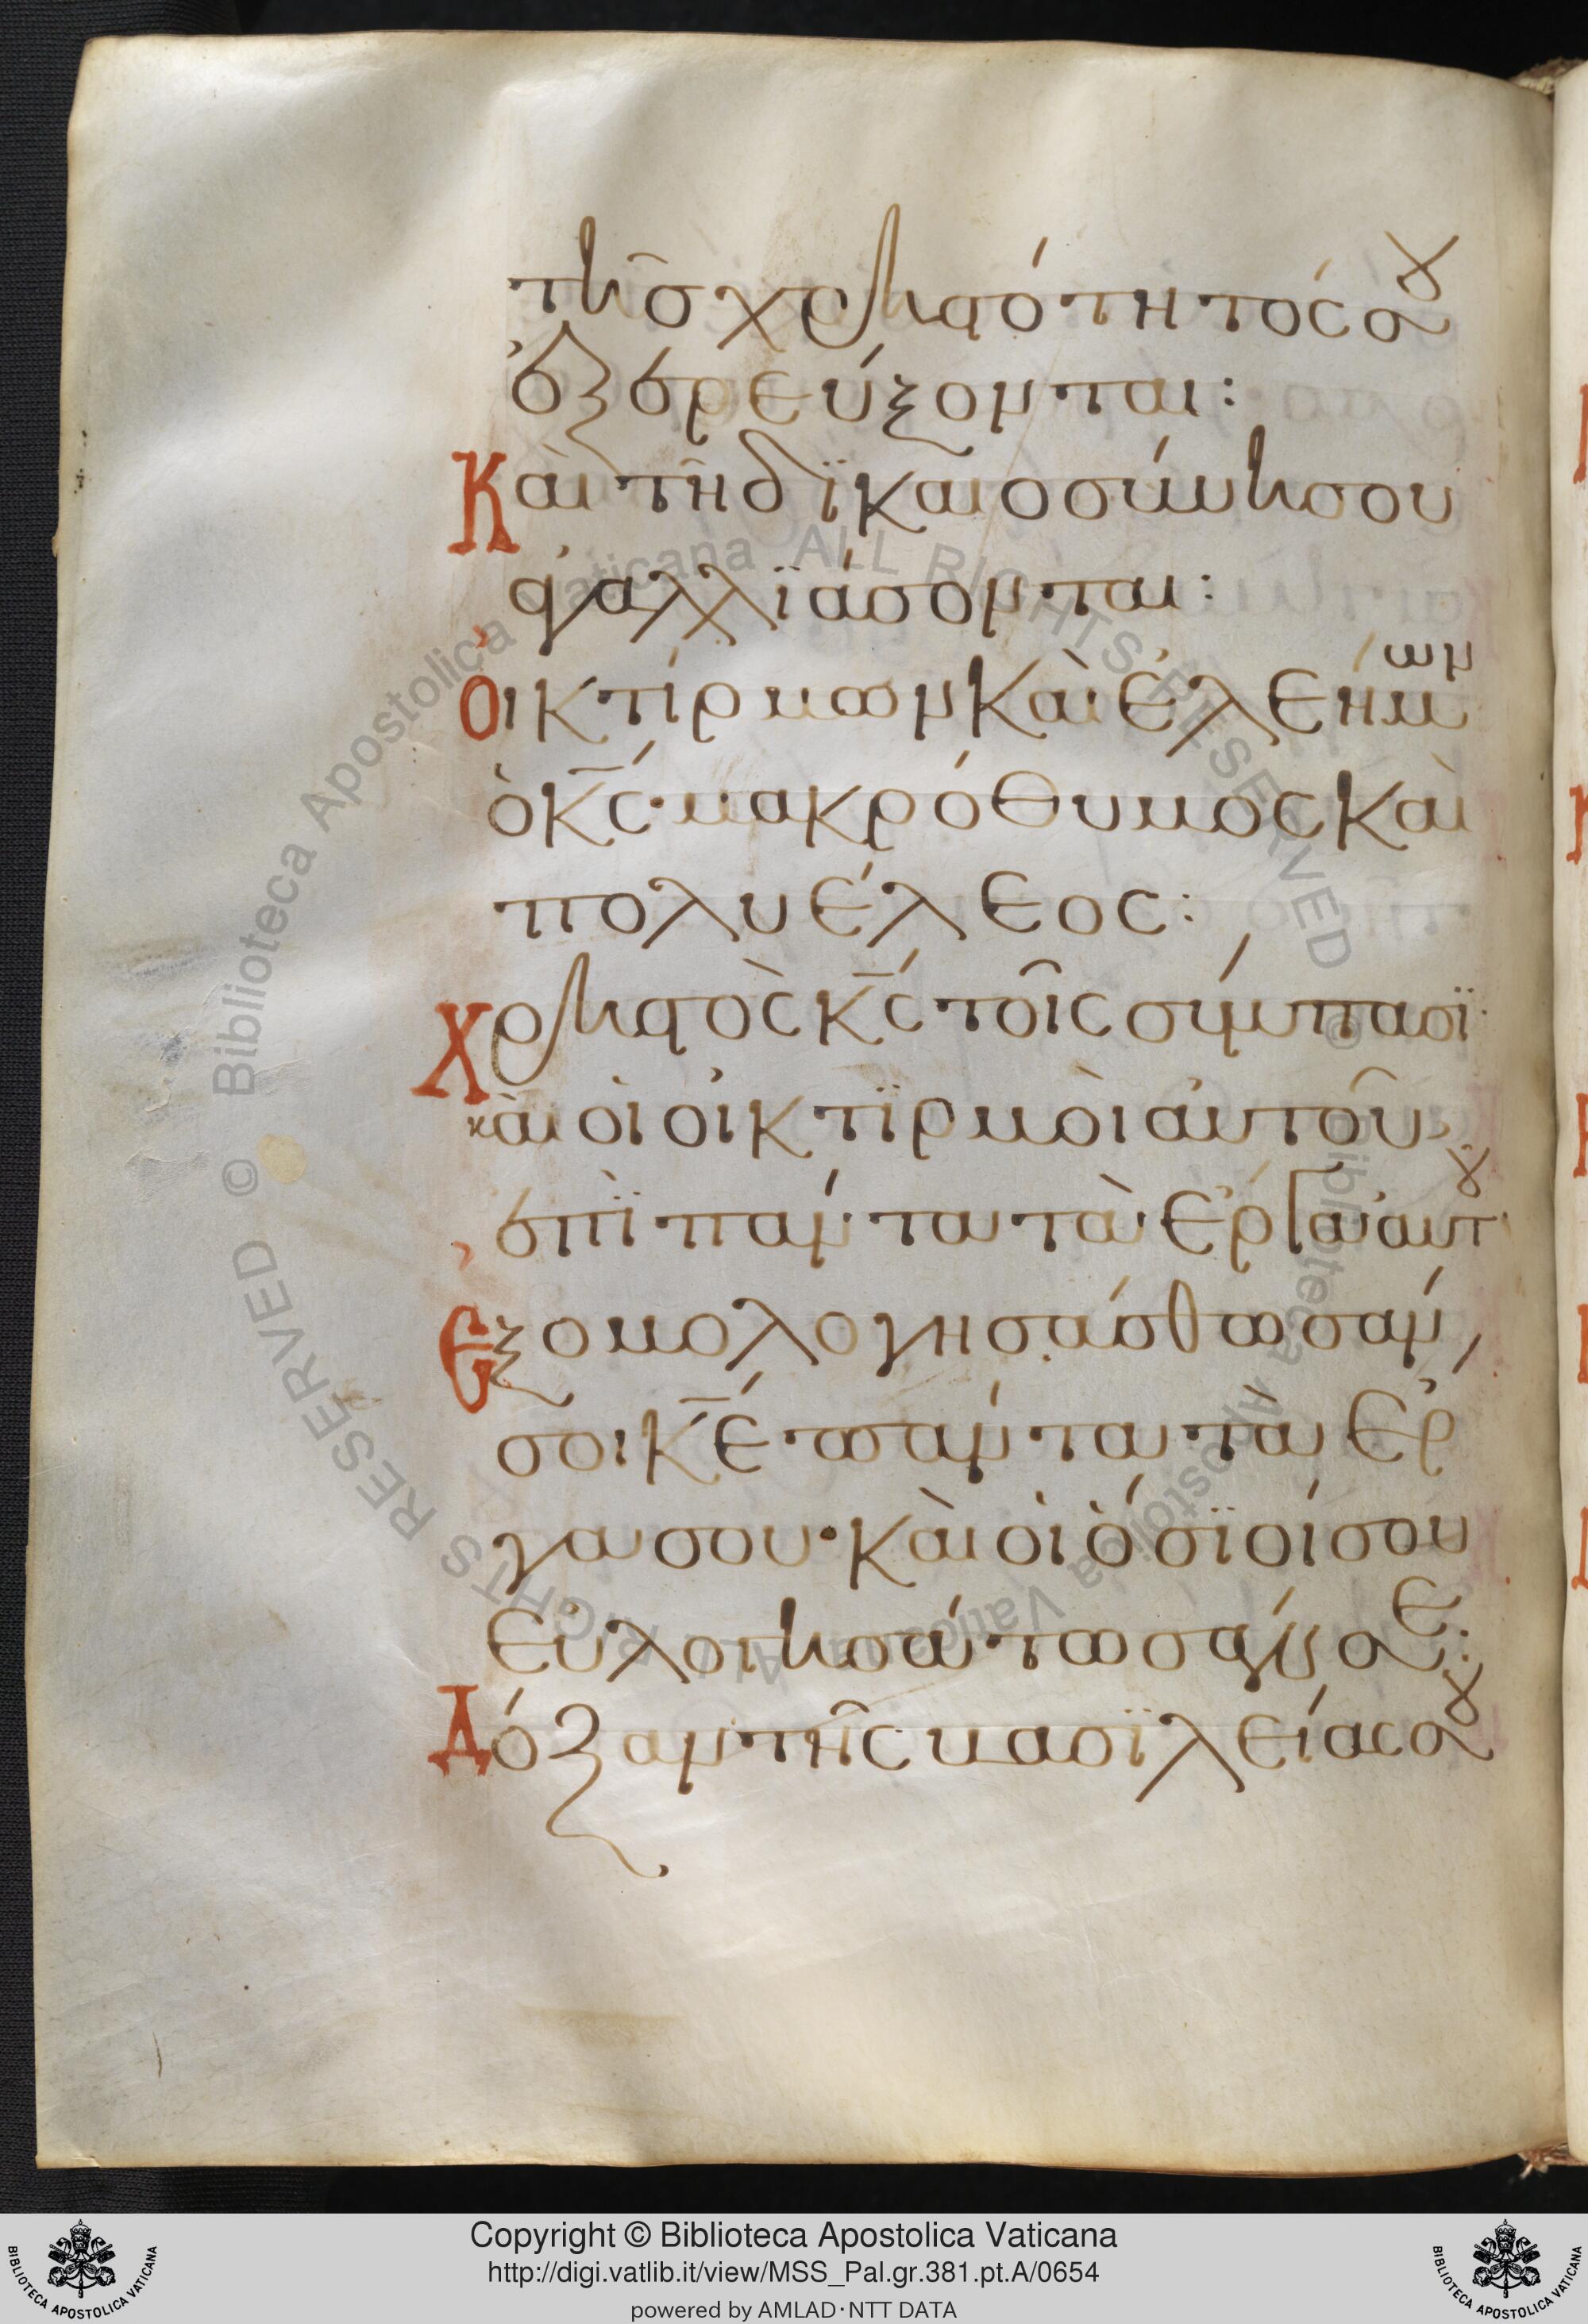 τῆσ χρηστότητός σου
ἐξερεύξονται:
Καὶ τῆ δϊκαιοσύνη σου
ἀγαλλϊάσονται:
Ὀικτίρμων καὶ ἐλεήμων
ὁ κς· μακρόθυμος και
πολυέλεος:
Χρηστὸς κς τοῖς σύμπασϊ·
καὶ οἱ οἰκτϊρμοὶ ἀυτοῦ
ἐπὶ πάντα τὰ ἔργα ἀυτου
Ἐξομολογησάσθωσάν
σοι κε πάντα τὰ ἔρ
γα σου· καὶ οἱ ὅσϊοί σου
εὐλογησάτωσάν σε:
Δόξαν τῆς βασϊλείας σου
© Biblioteca Apostolica Vaticana ALL RIGHTS RESERVED
© Biblioteca Apostolica Vaticana ALL RIGHTS RESERVED
Copyright © Biblioteca Apostolica Vaticana
http://digi.vatlib.it/view/MSS_Pal.gr.381.pt.A/0654
powered by AMLAD·NTT DATA
BIBLIOTECA APOSTOLICA VATICANA
BIBLIOTECA APOSTOLICA VATICANA